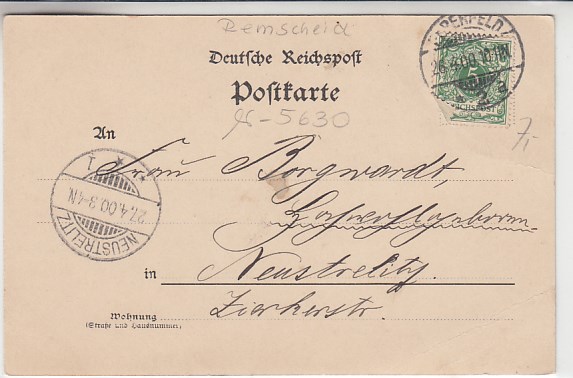 Remscheid
Deutsche Reichspost
Postkarte
5630
An
Frau Borgwardt,
in Neustrelitz.
Zierkerstr.
Wohnung
(Straße und Hausnummer)
26.4.00
5
7,-
1
27.4.00.3-4N.
NEUSTRELITZ